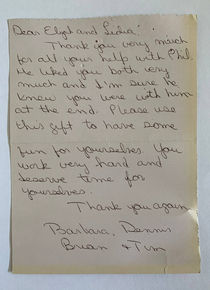 Dear Elyst and Lidia!
Thank you very much
for all your help with Phil.
He liked you both very
much and I'm sure he
knew you were with him
at the end. Please use
this gift to have some
fun for yourselves. You
work very hard and
deserve time for
yourselves.
Thank you again
Barbara, Dennis
Brian + Tim